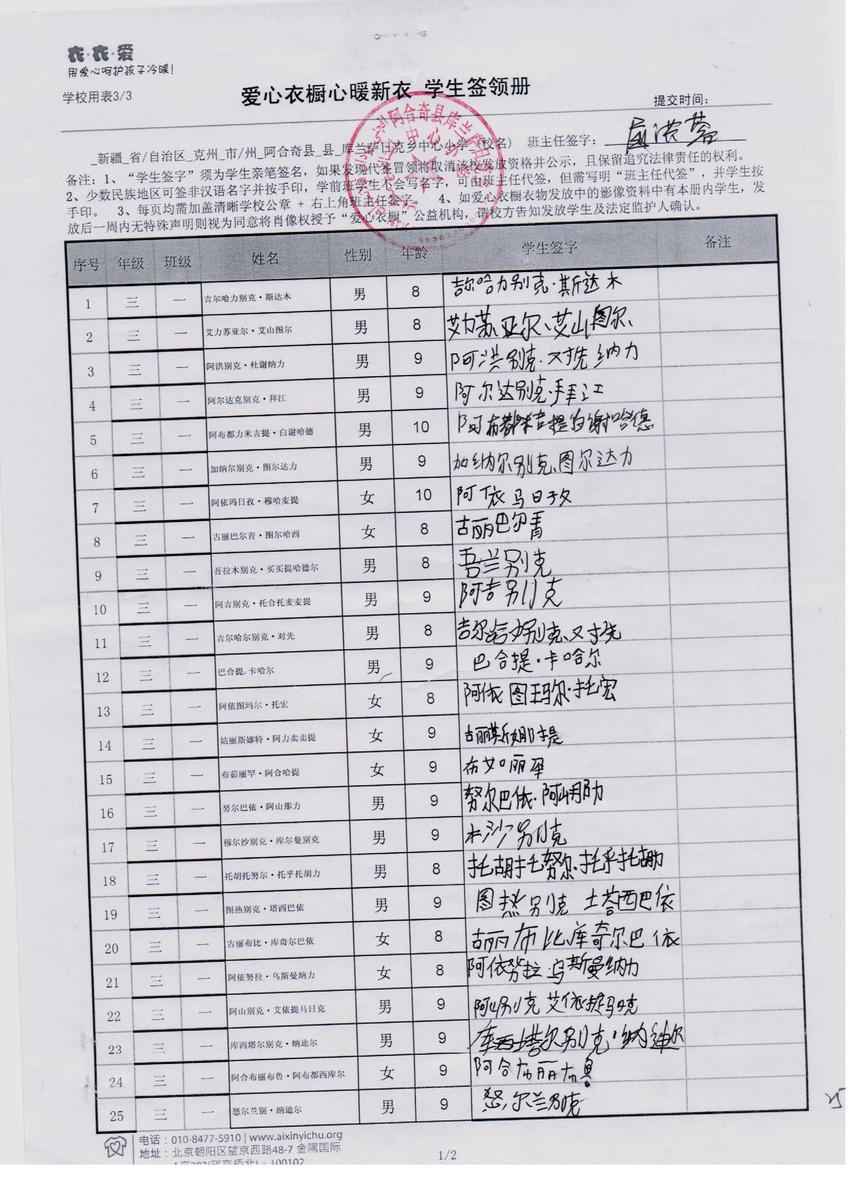 衣·衣·爱
用爱心呵护孩子冷暖!
学校用表3/3
爱心衣橱心暖新衣 学生签领册
提交时间:
_新疆_省/自治区_克州_市/州_阿合奇县_县_库兰萨日克乡中心小学_(校名) 班主任签字:
备注:1、“学生签字”须为学生亲笔签名,如果发现代签冒领将取消该校发放资格并公示,且保留追究法律责任的权利。
2、少数民族地区可签非汉语名字并按手印,学前班学生不会写名字,可由班主任代签,但需写明“班主任代签”,并学生按
手印。 3、每页均需加盖清晰学校公章 + 右上角班主任签字。 4、如爱心衣橱衣物发放中的影像资料中有本册内学生,发
放后一周内无特殊声明则视为同意将肖像权授予“爱心衣橱”公益机构,请校方告知发放学生及法定监护人确认。
序号 年级 班级 姓名 性别 年龄 学生签字 备注
1 三 一 吉尔哈力别克·斯达木 男 8 吉尔哈力别克·斯达木
2 三 一 艾力苏亚尔·艾山图尔 男 8 艾力苏亚尔、艾山图尔、
3 三 一 阿洪别克·杜谢纳力 男 9 阿洪别克·对先纳力
4 三 一 阿尔达克别克·拜江 男 9 阿尔达别克·拜江
5 三 一 阿布都力米吉提·白谢哈德 男 10
6 三 一 加纳尔别克·图尔达力 男 9 加纳尔别克、图尔达力
7 三 一 阿依玛日孜·穆哈麦提 女 10 阿依马日孜
8 三 一 古丽巴尔青·图尔哈西 女 8 古丽巴尔青
9 三 一 吾拉木别克·买买提哈德尔 男 8 吾兰别克
10 三 一 阿吉别克·托合托麦麦提 男 9 阿吉别克
11 三 一 吉尔哈尔别克·对先 男 8 吉尔哈别克、对先
12 三 一 巴合提.卡哈尔 男 9 巴合提·卡哈尔
13 三 一 阿依图玛尔·托宏 女 8 阿依图玛尔·托宏
14 三 一 姑丽斯娜特·阿力卖卖提 女 9
15 三 一 布茹丽罕·阿合哈提 女 9 布女口丽罕
16 三 一 努尔巴依·阿山那力 男 9 努尔巴依·阿山那力
17 三 一 穆尔沙别克·库尔曼别克 男 9 木沙别克
18 三 一 托胡托努尔·托乎托胡力 男 8 托胡托努尔·托乎托胡力
19 三 一 图热别克·塔西巴依 男 9 图热别克 土荅西巴依
20 三 一 古丽布比·库奇尔巴依 女 8 古丽布比库奇尔巴依
21 三 一 阿依努拉·乌斯曼纳力 女 8 阿依努拉乌斯曼纳力
22 三 一 阿山别克·艾依提马日克 男 9 阿山别克 艾依提马日克
23 三 一 库西塔尔别克·纳迪尔 男 9 塔尔别克·纳迪尔
24 三 一 阿合布丽布鲁·阿布都西库尔 女 9 阿合布丽布
25 三 一 怒尔兰别·纳迪尔 男 9 怒尔兰别克
电话:010-8477-5910 | www.aixinyichu.org
地址:北京朝阳区望京西路48-7 金隅国际
1/2